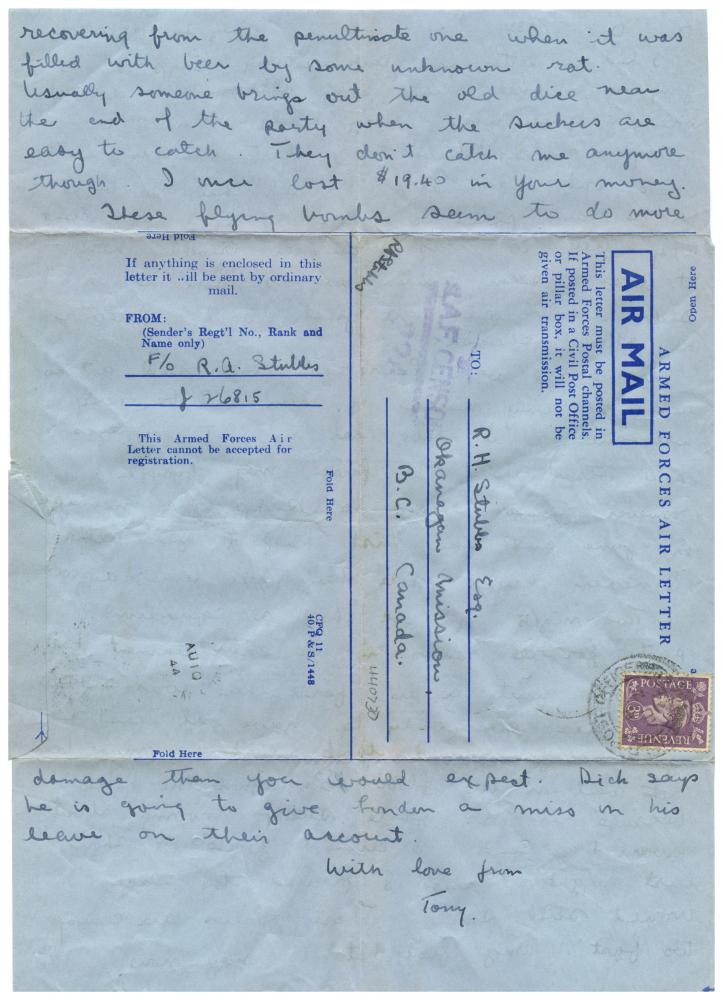 recovering from the penultimate one when it was
filled with beer by some unknown rat.
Usually someone brings out the old dice near
the end of the party when the suckers are
easy to catch. They don't catch me anymore
though. I once lost $19.40 in your money.
These flying bombs seem to do more
Fold Here
If anything is enclosed in this
letter it ..ill be sent by ordinary
mail.
FROM:
(Sender's Regt'l No., Rank and
Name only)
F/O R.A. Stubbs
J 26815
This Armed Forces Air
Letter cannot be accepted for
registration.
Fold Here
CPQ 11
40/P & S/1448
AU 10
44
Fold Here
Open Here
ARMED FORCES AIR LETTER
AIR MAIL
This letter must be posted in
Armed Forces Postal channels.
If posted in a Civil Post Office
or pillar box, it will not be
given air transmission.
RAStubbs
R.A.F. CENSOR
TO:
R.H. Stubbs Esq.
Okanagan Mission,
B.C. Canada.
440730
POSTAGE
3D
REVENUE
damage than you would expect. Dick says
he is going to give London a miss on his
leave on their account.
With love from
Tony.